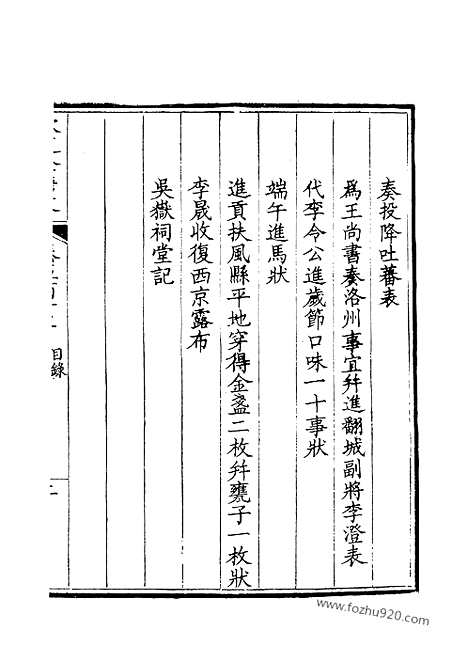 奏投降吐蕃表
為王尚書奏洛州事宜幷進翻城副將李澄表
代李令公進歲節口味一十事狀
端午進馬狀
進貢扶風縣平地穿得金盞二枚幷甕子一枚狀
李晟收復西京露布
吳嶽祠堂記
目錄
www.fozhu920.com